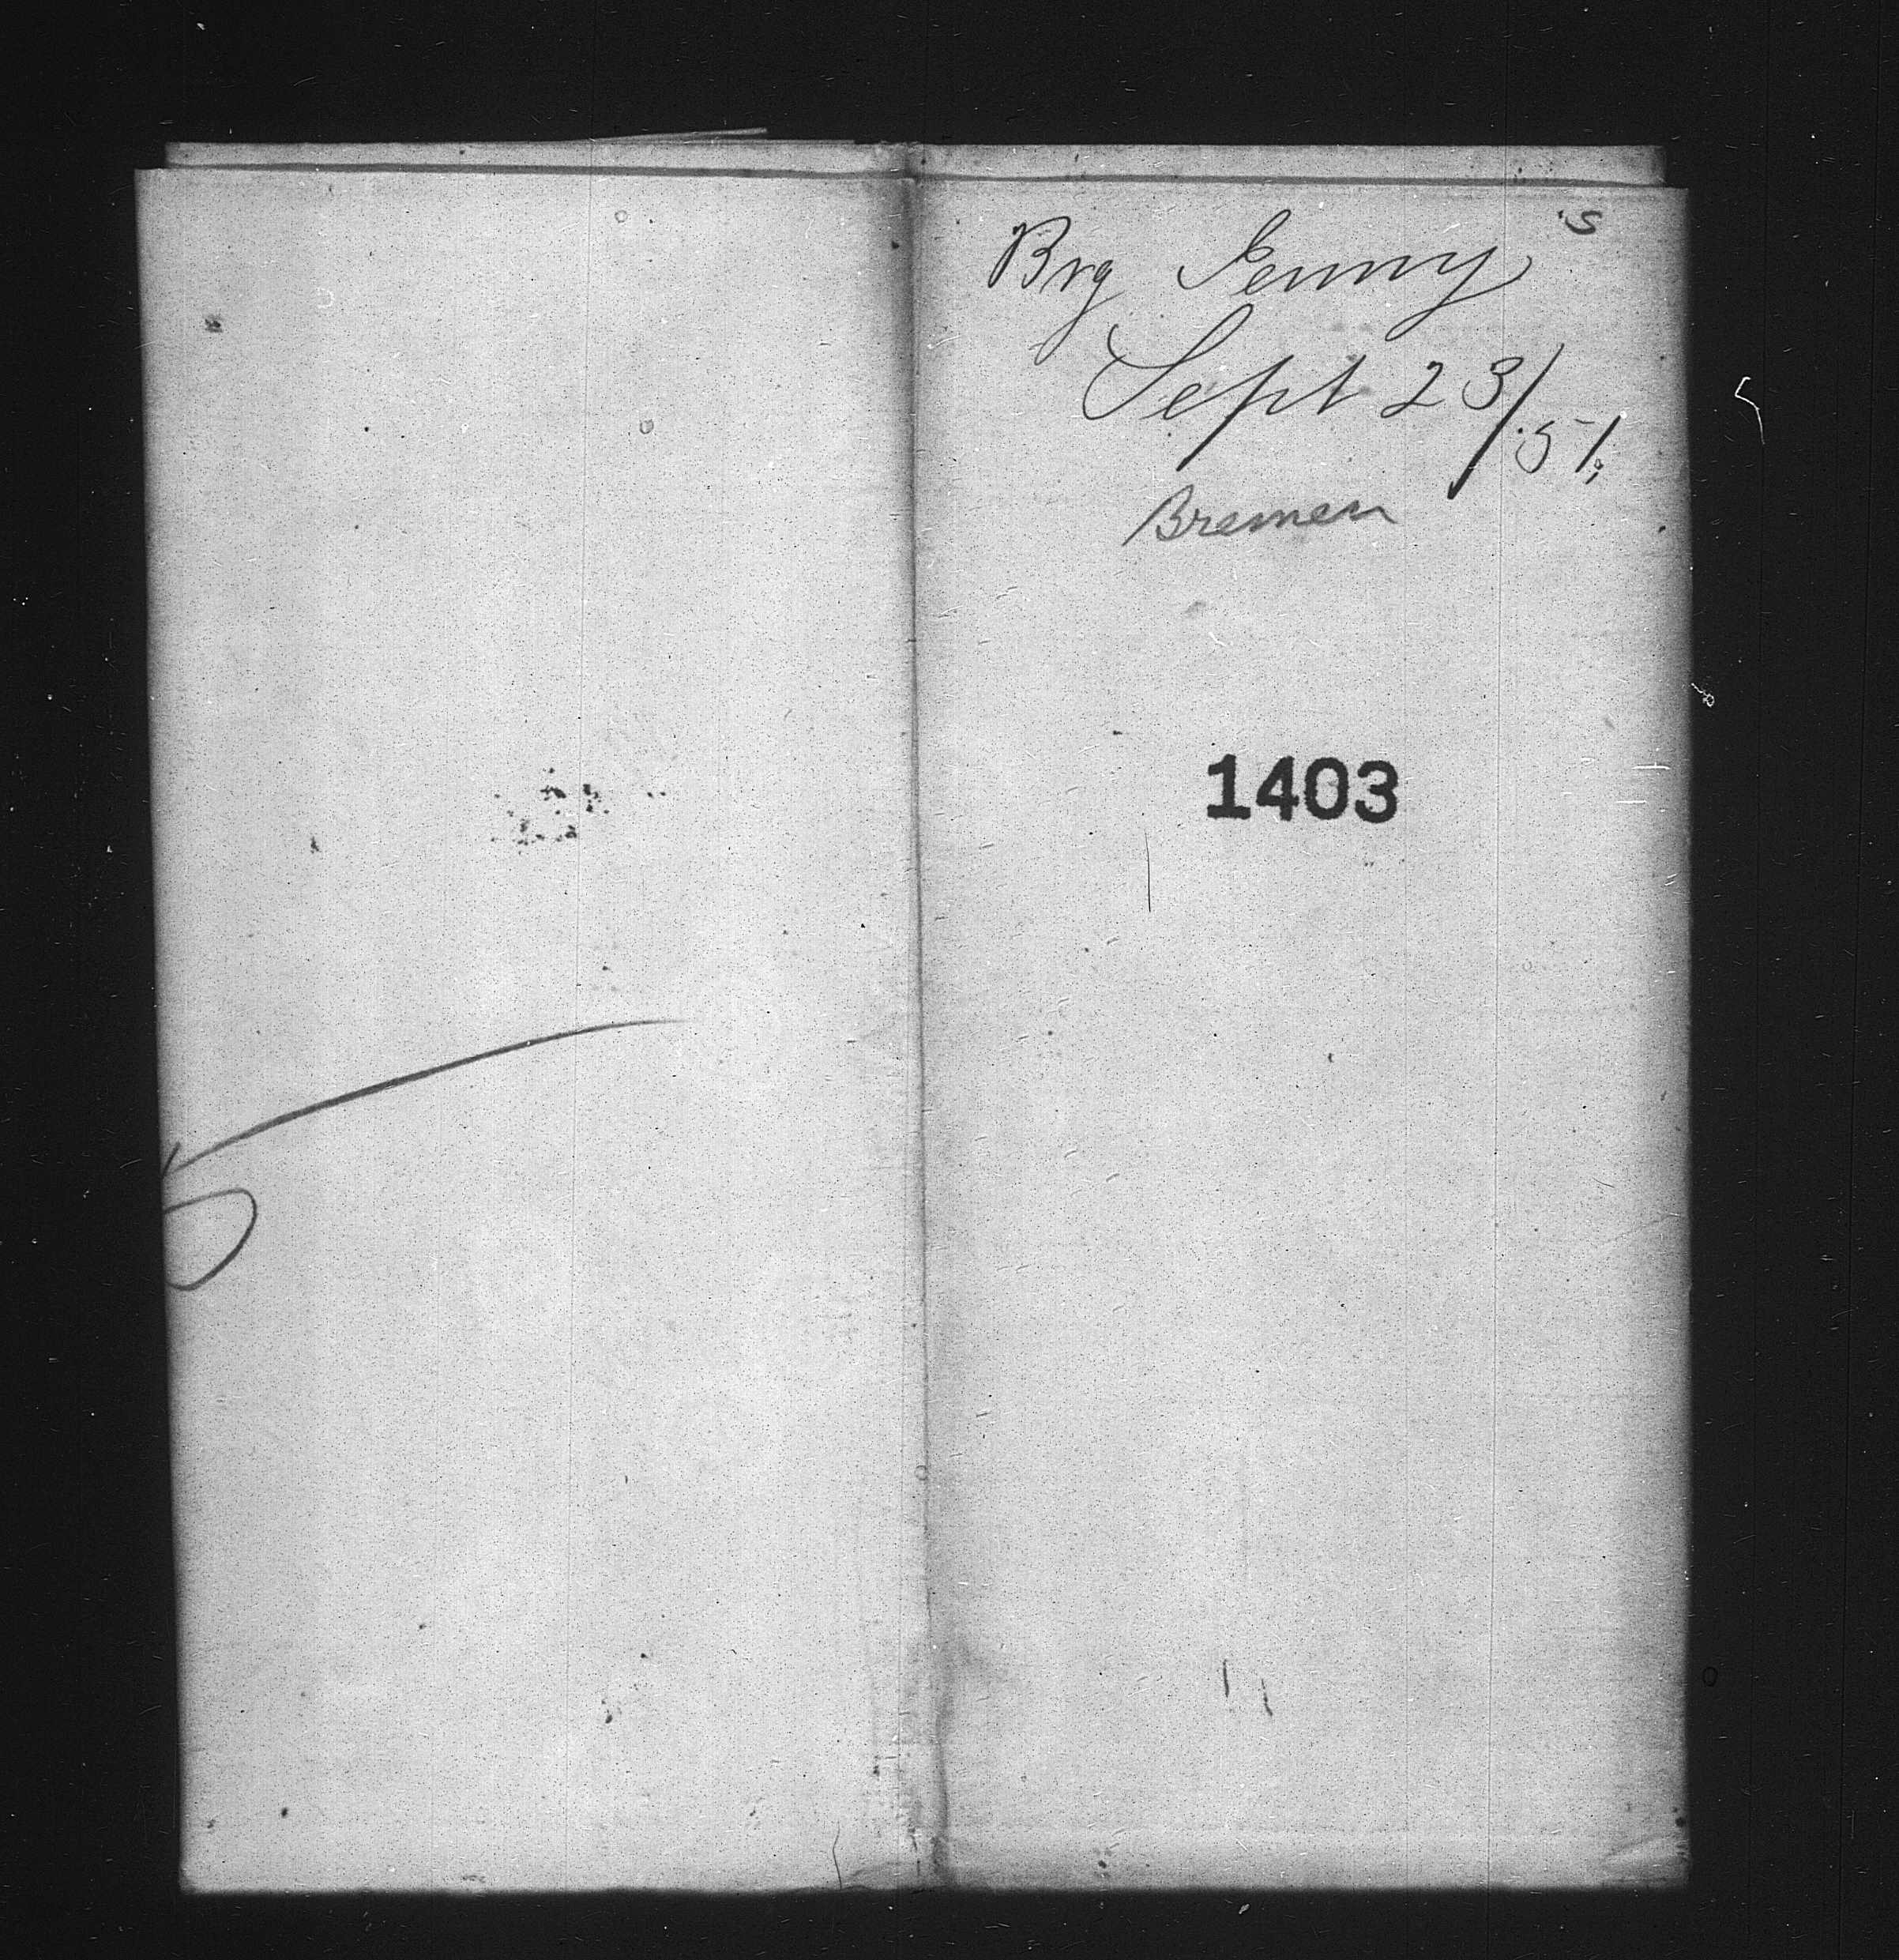 Brg Jenny
Sept 23/51
Bremen
1403